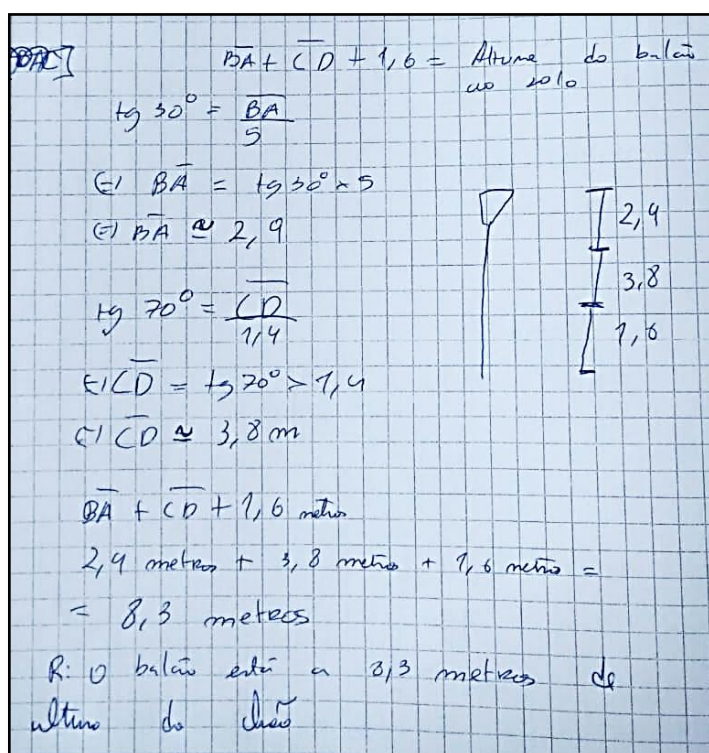 BA + CD + 1,6 = Altura do balão
ao solo
tg 30° = BA
5
(=) BA = tg 30° × 5
(=) BA ≃ 2,9
2,9
3,8
1,6
tg 70° = CD
1,4
(=) CD = tg 70° × 1,4
(=) CD ≃ 3,8 m
BA + CD + 1,6 metros
2,9 metros + 3,8 metros + 1,6 metros =
= 8,3 metros
R: O balão está a 8,3 metros de
altura do chão